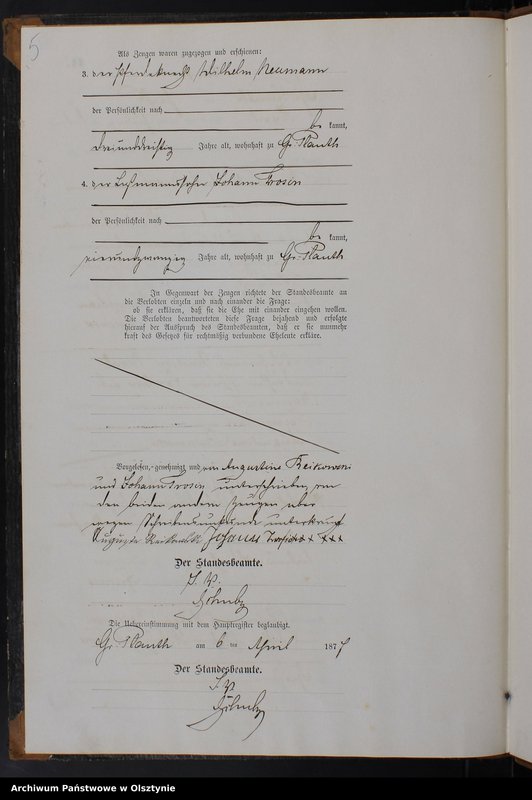 5
Als Zeugen waren zugezogen und erschienen:
3. der Pferdeknecht Wilhelm Neumann
der Persönlichkeit nach
be kannt,
dreiunddreißig Jahre alt, wohnhaft zu Gr. Plauth
4. der Johann Trosin
der Persönlichkeit nach
be kannt,
vierundzwanzig Jahre alt, wohnhaft zu Gr. Plauth
In Gegenwart der Zeugen richtete der Standesbeamte an
die Verlobten einzeln und nach einander die Frage:
ob sie erklären, daß sie die Ehe mit einander eingehen wollen.
Die Verlobten beantworteten diese Frage bejahend und erfolgte
hierauf der Ausspruch des Standesbeamten, daß er sie nunmehr
kraft des Gesetzes für rechtmäßig verbundene Eheleute erkläre.
Vorgelesen, genehmigt und von Augustine Reikowski
und Johann Trosin unterschrieben, von
den beiden andern Zeugen aber
wegen Schreibensunkunde unterkreuzt
Johann Trosin xxx xxx
Der Standesbeamte.
J. V.
Die Uebereinstimmung mit dem Hauptregister beglaubigt.
Gr. Plauth am 6 ten April 1877
Der Standesbeamte.
J. V.
Archiwum Państwowe w Olsztynie